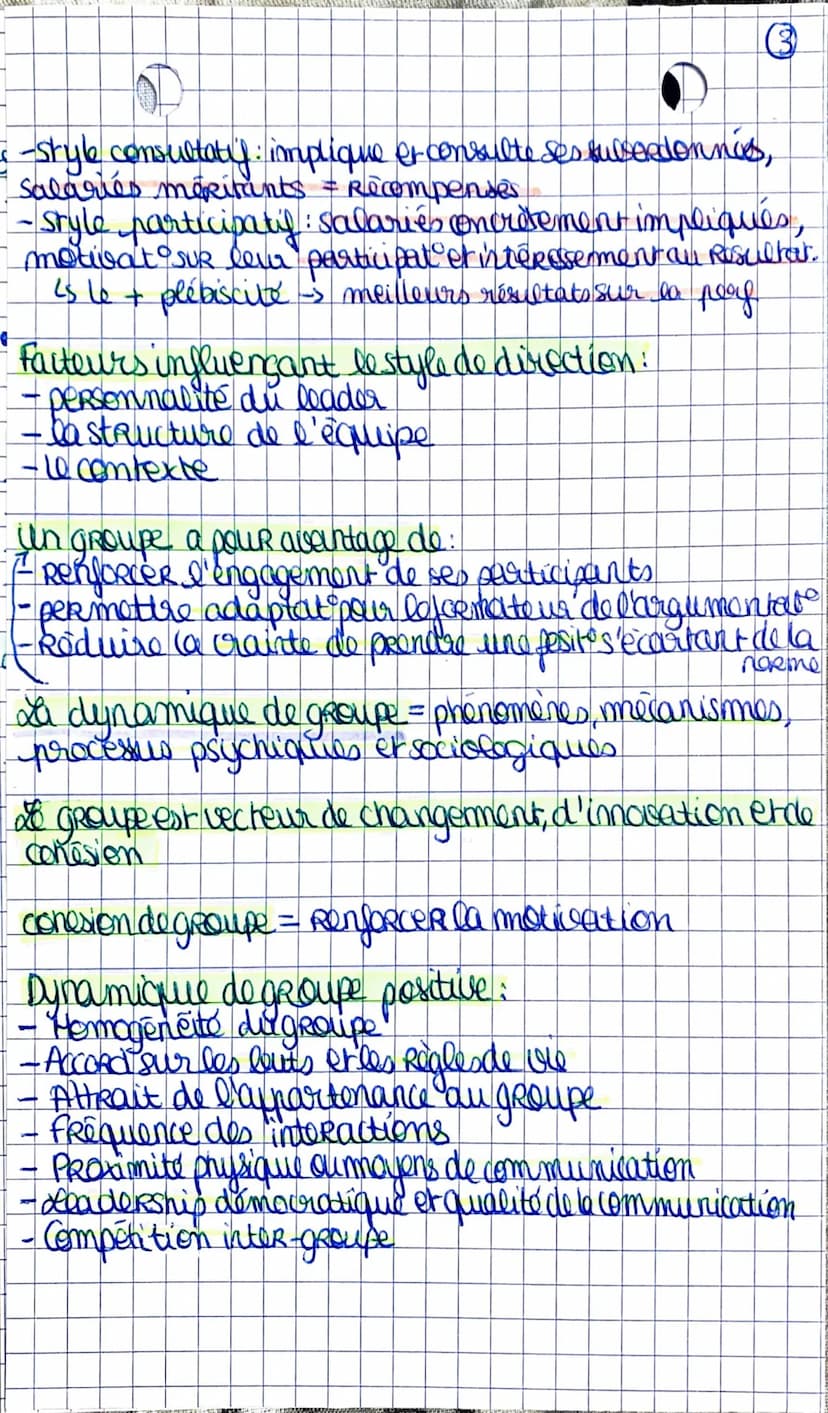 ③
-style consultatif : implique et consulte ses subordonnés,
salariés méritants = Récompensés
- style participatif : salariés concrètement impliqués,
motivat° sur leur participat° et intéressement au Résultat.
↳ le + plébiscité → meilleurs résultats sur la perf
Facteurs influençant le style de direction :
- personnalité du leader
- la structure de l'équipe
- le contexte
Un groupe a pour avantage de :
- Renforcer l'engagement de ses participants
- permettre adaptat° pour le formateur de l'argumentat°
- Réduire la crainte de prendre une posit° s'écartant de la
norme
La dynamique de groupe = phénomènes, mécanismes,
processus psychiques et sociologiques
Le groupe est vecteur de changement, d'innovation et de
cohésion
cohésion de groupe = Renforcer la motivation
Dynamique de groupe positive :
- Homogénéité du groupe
- Accord sur les buts et les Règles de vie
- Attrait de l'appartenance au groupe
- fréquence des interactions
- Proximité physique ou moyens de communication
- Leadership démocratique et qualité de la communication
- Compétition inter-groupe